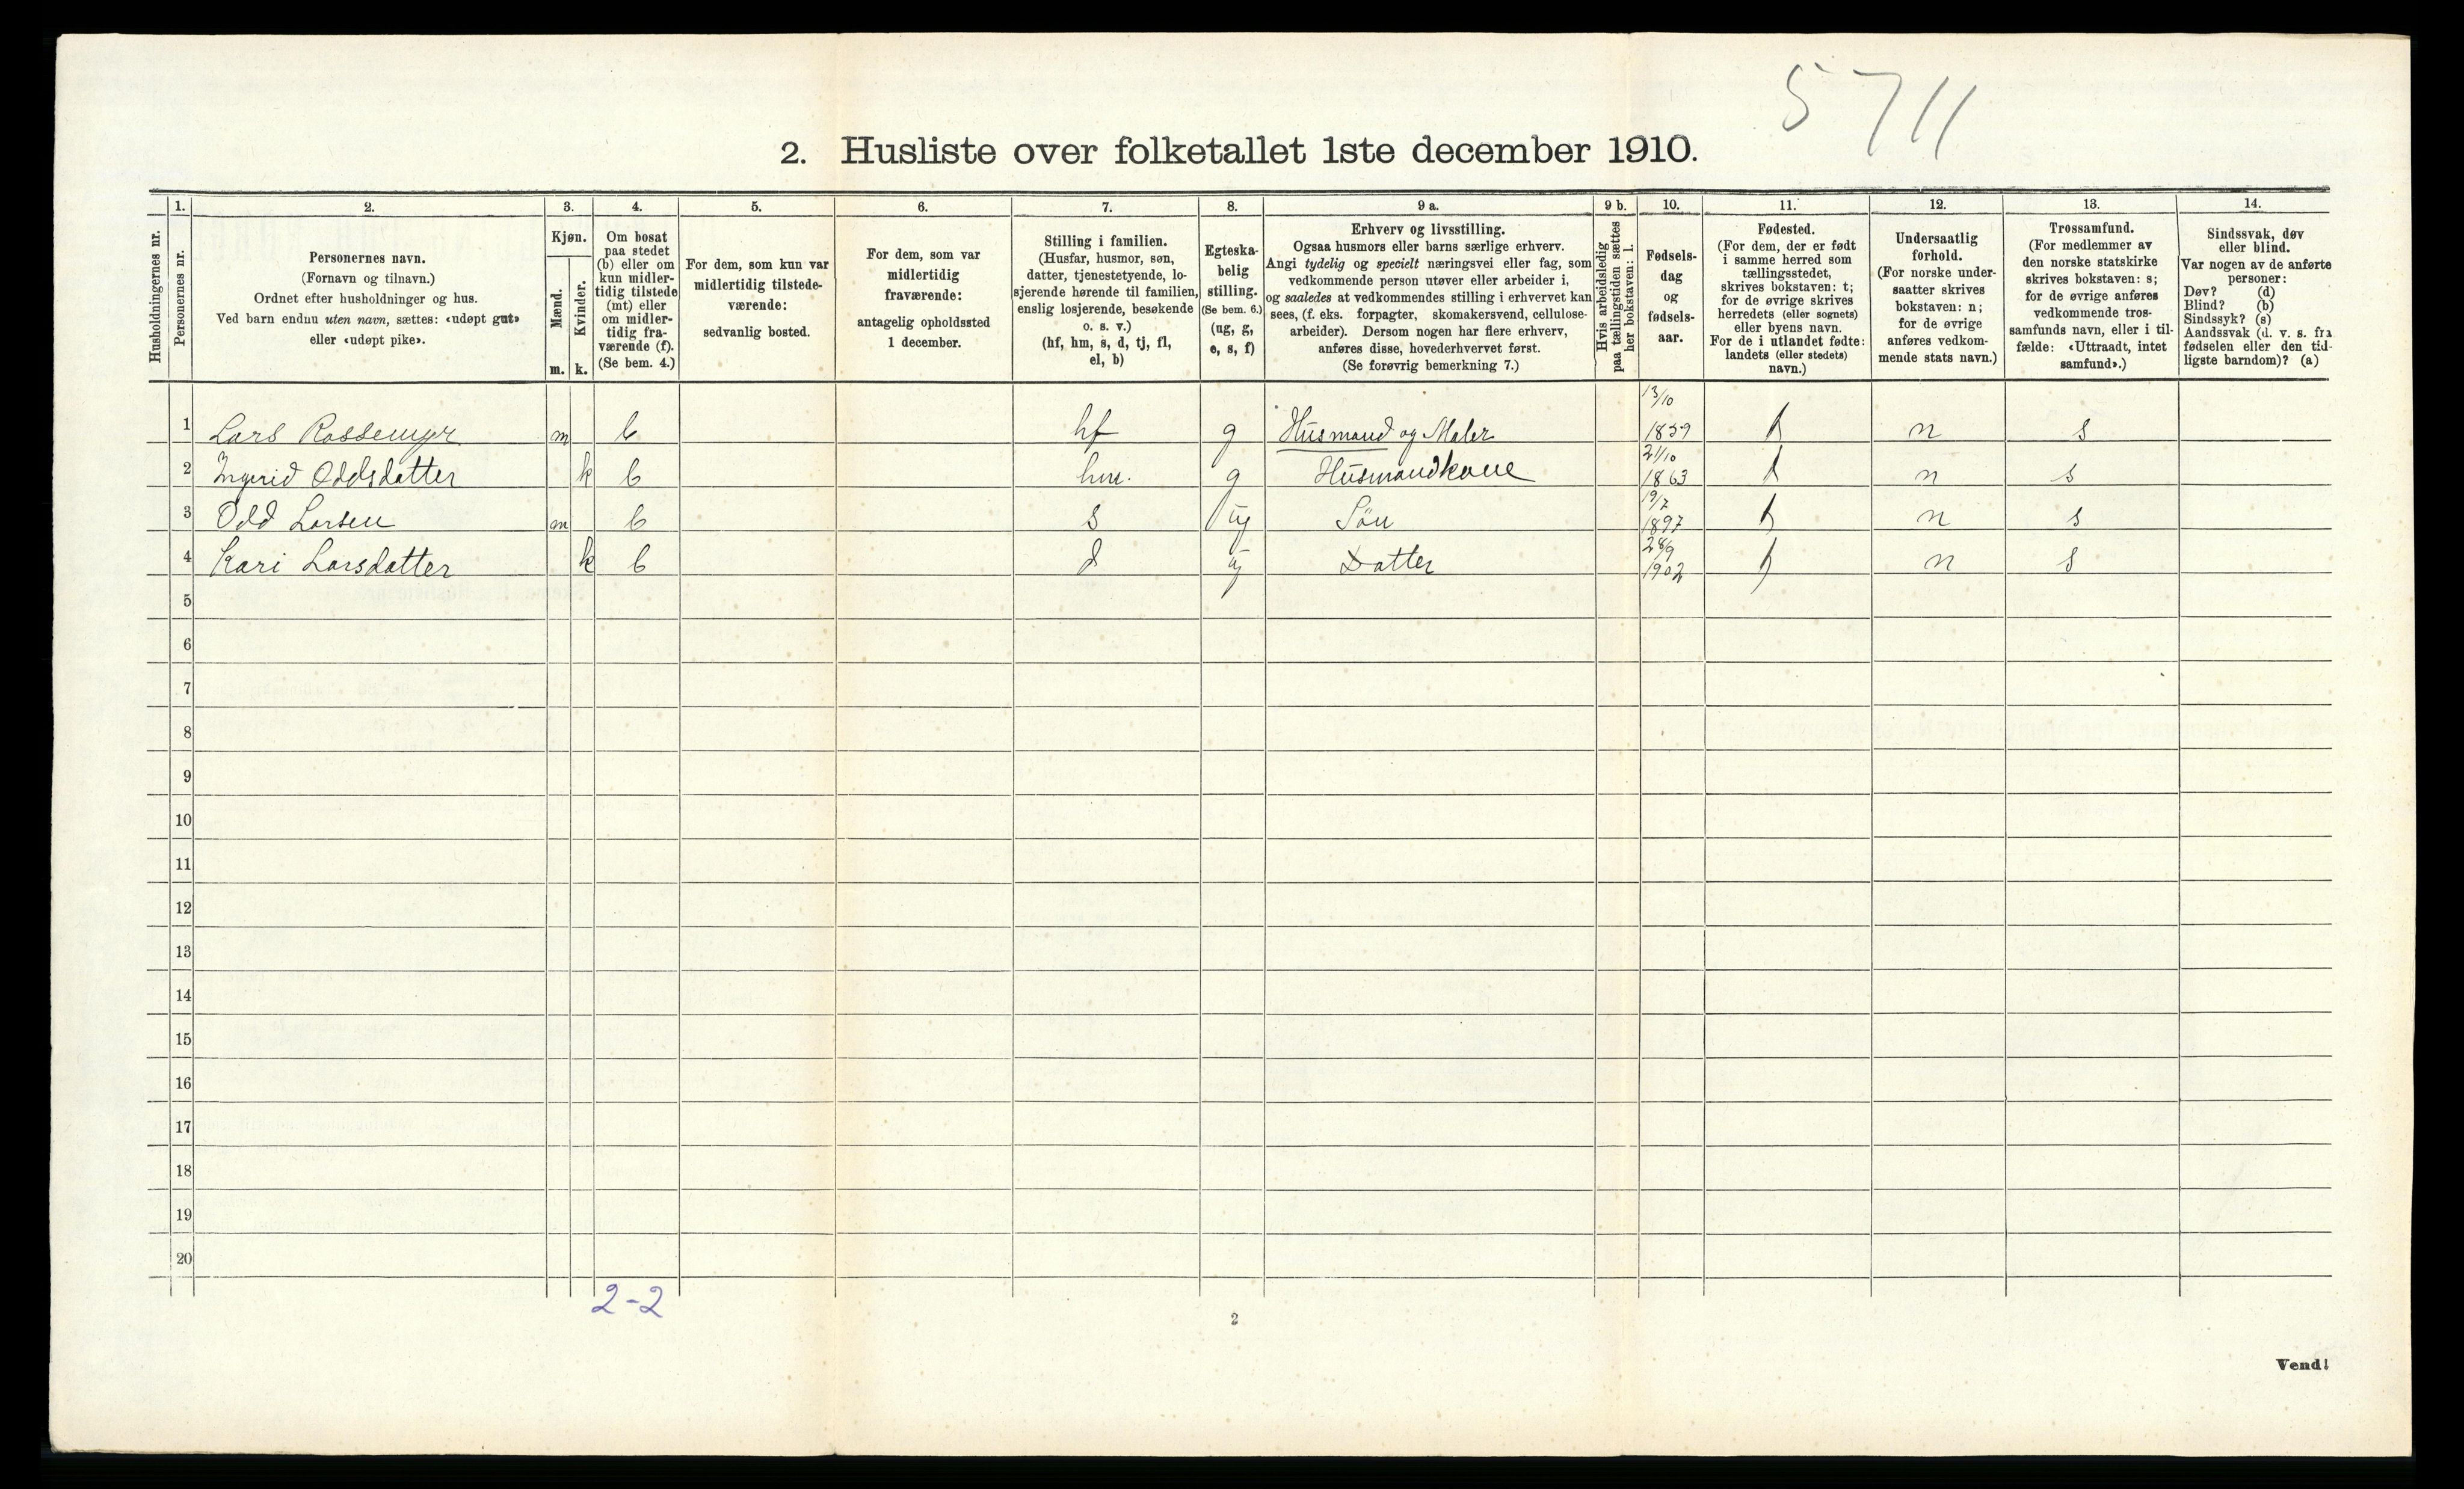 5711
2. Husliste over folketallet 1ste december 1910.
Husholdningernes nr.
1.
Personernes nr.
2.
Personernes navn.
(Fornavn og tilnavn.)
Ordnet efter husholdninger og hus.
Ved barn endnu uten navn, sættes: «udøpt gut»
eller «udøpt pike».
3.
Kjøn.
Mænd.
Kvinder.
m. k.
4.
Om bosat
paa stedet
(b) eller om
kun midler-
tidig tilstede
(mt) eller
om midler-
tidig fra-
værende (f).
(Se bem. 4.)
5.
For dem, som kun var
midlertidig tilstede-
værende:
sedvanlig bosted.
6.
For dem, som var
midlertidig
fraværende:
antagelig opholdssted
1 december.
7.
Stilling i familien.
(Husfar, husmor, søn,
datter, tjenestetyende, lo-
sjerende hørende til familien,
enslig losjerende, besøkende
o. s. v.)
(hf, hm, s, d, tj, fl,
el, b)
8.
Egteska-
belig
stilling.
(Se bem. 6.)
(ug, g,
e, s, f)
9 a.
Erhverv og livsstilling.
Ogsaa husmors eller barns særlige erhverv.
Angi tydelig og specielt næringsvei eller fag, som
vedkommende person utøver eller arbeider i,
og saaledes at vedkommendes stilling i erhvervet kan
sees, (f. eks. forpagter, skomakersvend, cellulose-
arbeider). Dersom nogen har flere erhverv,
anføres disse, hovederhvervet først.
(Se forøvrig bemerkning 7.)
9 b.
Hvis arbeidsledig
paa tællingstiden sættes
her bokstaven: l.
10.
Fødsels-
dag
og
fødsels-
aar.
11.
Fødested.
(For dem, der er født
i samme herred som
tællingsstedet,
skrives bokstaven: t;
for de øvrige skrives
herredets (eller sognets)
eller byens navn.
For de i utlandet fødte:
landets (eller stedets)
navn.)
12.
Undersaatlig
forhold.
(For norske under-
saatter skrives
bokstaven: n;
for de øvrige
anføres vedkom-
mende stats navn.)
13.
Trossamfund.
(For medlemmer av
den norske statskirke
skrives bokstaven: s;
for de øvrige anføres
vedkommende tros-
samfunds navn, eller i til-
fælde: «Uttraadt, intet
samfund».)
14.
Sindssvak, døv
eller blind.
Var nogen av de anførte
personer:
Døv? (d)
Blind? (b)
Sindssyk? (s)
Aandssvak (d. v. s. fra
fødselen eller den tid-
ligste barndom)? (a)
1 Lars Rossemyr m b hf g Husmand og Maler 13/10 1839 t n s
2 Ingerid Oddsdatter k b hm. g Husmandkone 21/10 1863 t n s
3 Odd Larsen m b s ug Sön 19/7 1897 t n s
4 Kari Larsdatter k b d ug Datter 28/9 1902 t n s
5
6
7
8
9
10
11
12
13
14
15
16
17
18
19
20
2-2
2
Vend!